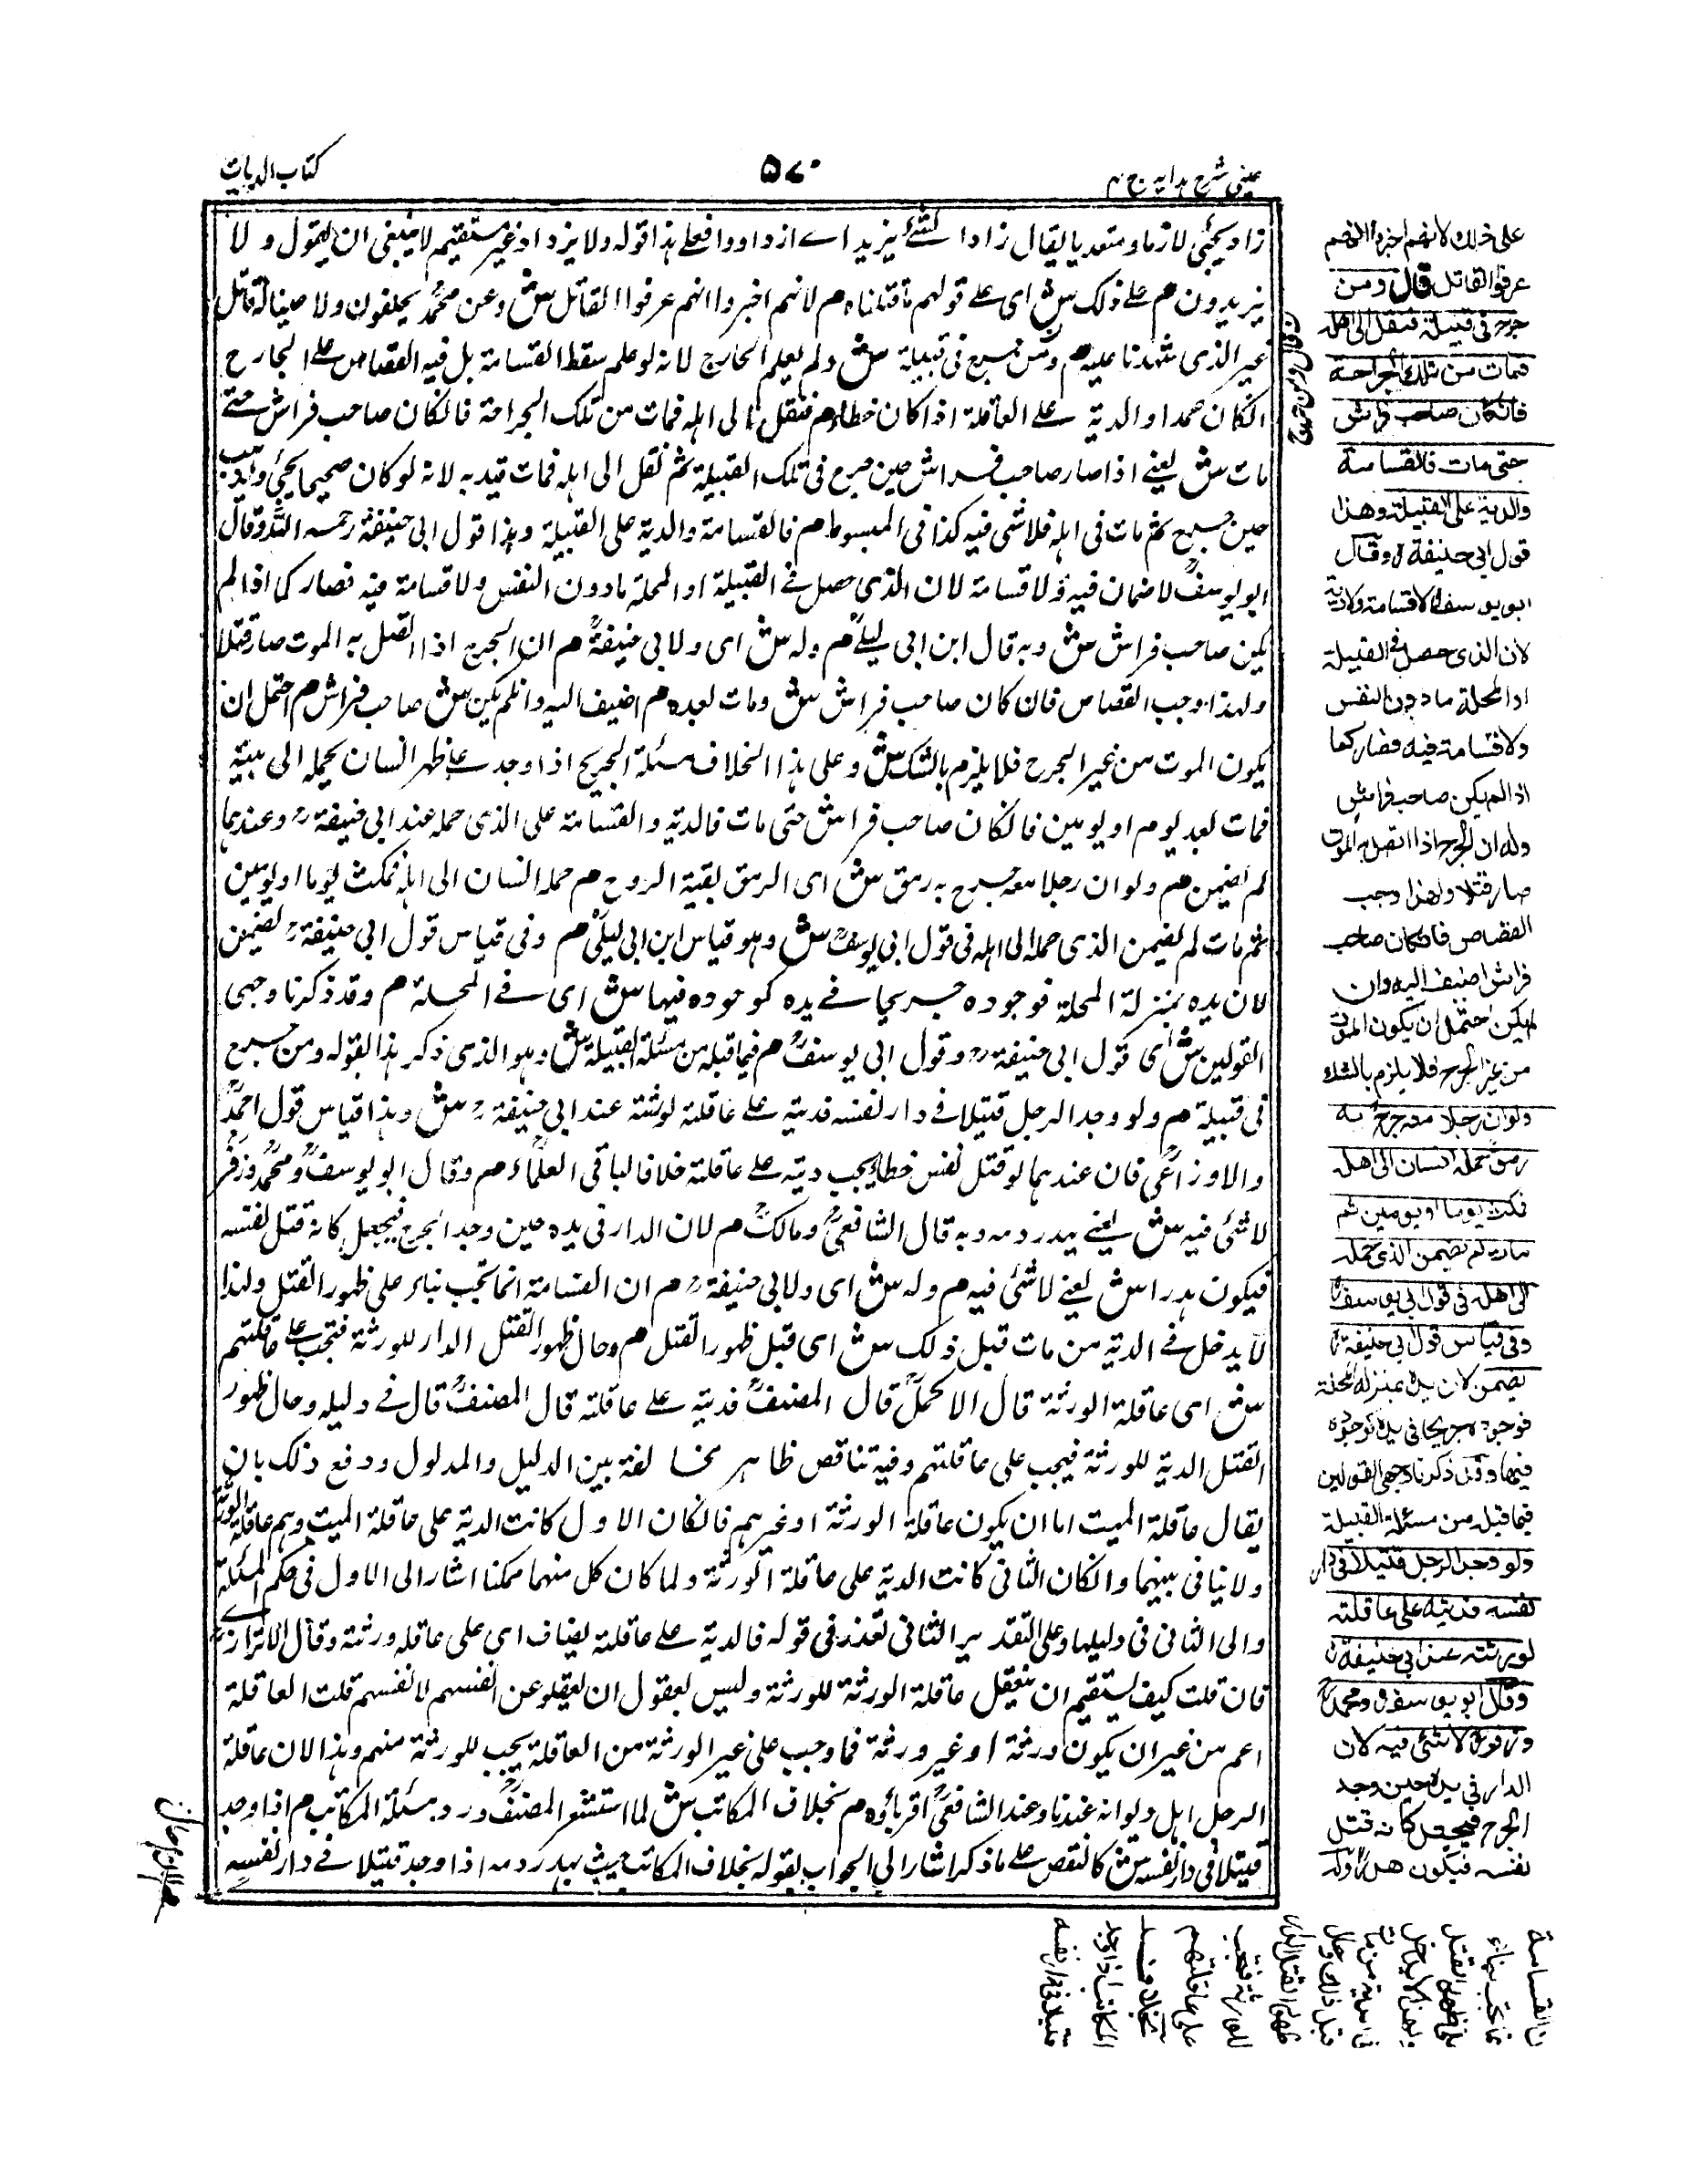 عینی شرح ہدایہ ج ۴
۵۷۰
کتاب الدیات
زاد یجئ لازما و متعدیا یقال زادا لشئ یزید اے ازداد و افعلے ہذا قولہ ولا یزداد غیر مستقیم لا ینبغی ان یقول و لا
یزیدون م علے ذلک ش ای علے قولہم ما قتلناہ م لانہم اخبروا انہم عرفوا القاتل ش وعن محمدؒ یحلفون ولا قاتل
غیر الذی شہدنا علیہ م ومن جرح فی قبیلۃ ش ولم یعلم الجارح لانہ لو علم سقط القسامۃ بل فیہ القصاص علے الجارح
انکان عمدا والدیۃ علے العاقلۃ اذا کان خطاء م فنقل الی اہلہ فمات من تلک الجراحۃ فانکان صاحب فراش حتے
مات ش یعنے اذا صار صاحب فراش حین جرح فی تلک القبیلۃ ثم نقل الی اہلہ فمات قید بہ لانہ لو کان صحیحا یجئ ویذہب
حین جرح ثم مات فی اہلہ فلا شی فیہ کذا فی المبسوط م فالقسامۃ والدیۃ علی القبیلۃ وہذا قول ابی حنیفۃ رحمہ اللہ وقال
ابو یوسفؒ لا ضمان فیہ ولا قسامۃ لان الذی حصل فے القبیلۃ او المحلۃ مادون النفس ولا قسامۃ فیہ فصار کما اذا لم
یکن صاحب فراش ش وبہ قال ابن ابی لیلےؒ م ولہ ش ای ولابی حنیفۃؒ م ان الجرح اذا اتصل بہ الموت صار قتلا
ولہذا وجب القصاص فان کان صاحب فراش ش ومات بعدہ م اضیف الیہ وانلم یکن ش صاحب فراش م احتمل ان
یکون الموت من غیر الجرح فلا یلزم بالشک ش وعلی ہذا الخلاف مسئلۃ الجریح اذا وجد علے ظہر انسان یحملہ الی بیتہ
فمات بعد یوم او یومین فانکان صاحب فراش حتی مات فالدیۃ والقسامۃ علی الذی حملہ عند ابی حنیفۃ رح وعندہما
لم یضمن م ولو ان رجلا معہ جرح بہ رمق ش ای الرمق بقیۃ الروح م حملہ انسان الی اہلہ فمکث یوما او یومین
ثم مات لم یضمن الذی حملہ الی اہلہ فی قول ابی یوسفؒ ش وہو قیاس ابن ابی لیلیؒ م وفی قیاس قول ابی حنیفۃ رح یضمن
لان یدہ بمنزلۃ المحلۃ فوجودہ جریحا فے یدہ کوجودہ فیہا ش ای فے المحلۃ م وقد ذکرنا وجہی
القولین ش ای قول ابی حنیفۃ رح وقول ابی یوسفؒ م فیما قبلہ من مسئلۃ القبیلۃ ش وہو الذی ذکر ہذا بقولہ ومن جرح
فی قبیلۃ م ولو وجد الرجل قتیلا فے دار نفسہ فدیتہ علے عاقلۃ لورثتہ عند ابی حنیفۃ رح ش وہذا قیاس قول احمدؒ
والاوزاعیؒ فان عندہما لو قتل نفس خطاء یجب دیتہ علے عاقلۃ خلافا لباقی العلماء م وقال ابو یوسفؒ ومحمدؒ وزفرؒ
لا شئی فیہ ش یعنے یہدر دمہ وبہ قال الشافعیؒ ومالکؒ م لان الدار فی یدہ حین وجد الجرح فیجعل کانہ قتل نفسہ
فیکون ہدرا ش یعنے لا شئی فیہ م ولہ ش ای ولابی حنیفۃ رح م ان القسامۃ انما تجب بناء علی ظہور القتل ولہذا
لا یدخل فے الدیۃ من مات قبل ذلک ش ای قبل ظہور القتل م وحال ظہور القتل الدار للورثۃ فتجب علے عاقلتہم
ش ای عاقلۃ الورثۃ قال الاکملؒ قال المصنفؒ فدیتہ علے عاقلتہ قال المصنفؒ قال فے دلیلہ وحال ظہور
القتل الدیۃ للورثۃ فیجب علی عاقلتہم وفیہ تناقص ظاہر مخالفۃ بین الدلیل والمدلول ودفع ذلک بان
یقال عاقلۃ المیت اما ان یکون عاقلۃ الورثۃ او غیرہم فانکان الاول کانت الدیۃ علی عاقلۃ المیت وہم عاقلۃ الورثۃ
ولا ینافی بینہما وانکان الثانی کانت الدیۃ علی عاقلۃ الورثۃ ولما کان کل منہما ممکنا اشار الی الاول فی حکم المسئلۃ
والی الثانی فی دلیلہا وعلی التقدیر الثانی تقدر فی قولہ فالدیۃ علے عاقلتہ یضاف ای علی عاقلہ ورثتہ وقال الاترازی
فان قلت کیف یستقیم ان یعقل عاقلۃ الورثۃ للورثۃ ولیس یعقول ان یعقلو عن انفسہم لانفسہم قلت العاقلۃ
اعم من غیر ان یکون ورثۃ او غیر ورثۃ فما وجب علی غیر الورثۃ من العاقلۃ یجب للورثۃ منہم وہذا لان عاقلۃ
الرجل اہل دیوانہ عندنا وعند الشافعیؒ اقرباؤہ م بخلاف المکاتب ش لما استشعر المصنفؒ ورد مسئلۃ المکاتب م اذا وجد
قتیلا فی دار نفسہ ش کالنقص علے ما ذکر اشار الی الجواب بقولہ بخلاف المکاتب حیث یہدر دمہ اذا وجد قتیلا فے دار نفسہ
علی ذلک لانہم اخبروا انہم
عرفوا القاتل قال ومن
جرح فی قبیلۃ فنقل الی اهلہ
فمات من تلك الجراحة
فانکان صاحب فراش
حتی مات فالقسامة
والدیۃ علی القبیلة وهذا
قول ابی حنیفة رح وقال
ابو یوسف رح لا قسامة ولا دیة
لان الذی حصل فی القبیلة
او المحلة مادون النفس
ولا قسامة فیہ فصار کما
اذا لم یکن صاحب فراش
وله ان الجرح اذا اتصل بہ الموت
صار قتلا ولهذا وجب
القصاص فانکان صاحب
فراش اضیف الیہ وان
لم یکن احتمل ان یکون الموت
من غیر الجرح فلا یلزم بالشك
ولو ان رجلا معہ جرح بہ
رمق حملہ انسان الی اهلہ
فمکث یوما او یومین ثم
مات لم یضمن الذی حملہ
الی اهلہ فی قول ابی یوسف رح
وفی قیاس قول ابی حنیفة رح
یضمن لان یدہ بمنزلة المحلة
فوجودہ جریحا فی یدہ کوجودہ
فیها وقد ذکرنا وجهی القولین
فیما قبلہ من مسئلة القبیلة
ولو وجد الرجل قتیلا فی دار
نفسہ فدیتہ علی عاقلتہ
لورثتہ عند ابی حنیفة رح
وقال ابو یوسف ومحمد
وزفر رح لا شئی فیہ لان
الدار فی یدہ حین وجد
الجرح فیجعل کانہ قتل
نفسہ فیکون هدرا ولہ
ان القسامة
انما تجب بناء
علی ظهور القتل
ولهذا لا یدخل
فی الدیة من مات
قبل ذلك وحال
ظهور القتل الدار
للورثة فتجب
علی عاقلتهم
بخلاف
المکاتب اذا وجد
قتیلا فی دار نفسہ